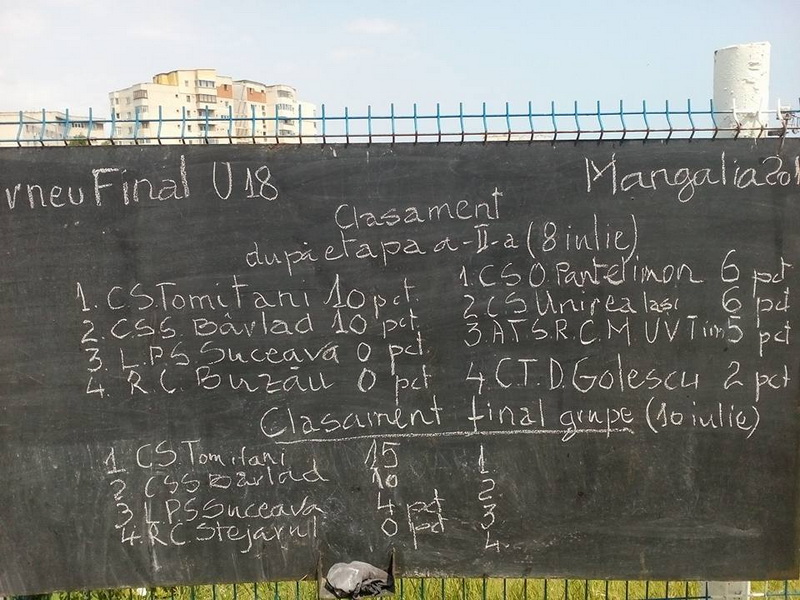 rneu Final U18
Mangalia 201
Clasament
după etapa a-II-a (8 iulie)
1. C.S. Tomitani 10 pct.
2. C.S.S. Bârlad 10 pct
3. L.P.S. Suceava 0 pct.
4. R.C. Buzău 0 pct
1. C.S.O. Pantelimon 6 pct
2. C.S. Unirea Iasi 6 pct
3. A.T.S.R.C.M. U V Tim 5 pct
4. C.T.D. Golescu 2 pct
Clasament final grupe (10 iulie)
1. CS. Tomitani 15
2 CSS Bârlad 10
3 LPS Suceava 4 pct
4. RC. Stejarul 0 pct
1.
2.
3
4.